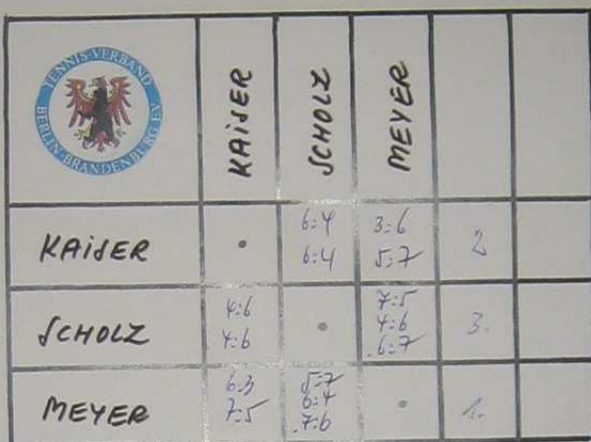 TENNIS-VERBAND
BERLIN-BRANDENBURG E.V.
KAiSER SCHOLZ MEYER
KAiSER • 6:4 3:6 2
6:4 5:7
SCHOLZ 4:6 • 7:5 3.
4:6 4:6
6:7
MEYER 6:3 5:7 • 1.
7:5 6:4
7:6